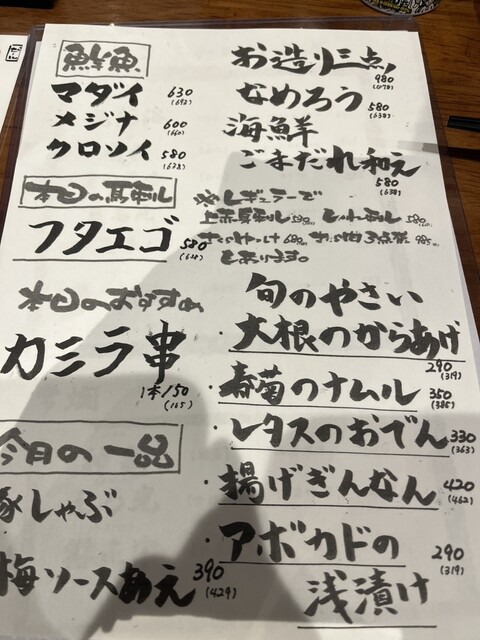 鮮魚
マダイ 630
(693)
メジナ 600
(660)
クロソイ 580
(638)
本日の馬刺し
フタエゴ 580
(638)
本日のおすすめ
カミラ串
1本150
(165)
今月の一品
豚しゃぶ
梅ソースあえ 390
(429)
お造り三点
980
(1078)
なめろう 580
(638)
海鮮
ごまだれ和え
580
(638)
※レギュラーで
上赤馬刺し
580
680
3点盛
あります。
旬のやさい
・大根のからあげ
290
(319)
・春菊のナムル 350
(385)
・レタスのおでん 330
(363)
・揚げぎんなん 420
(462)
・アボカドの 290
(319)
浅漬け